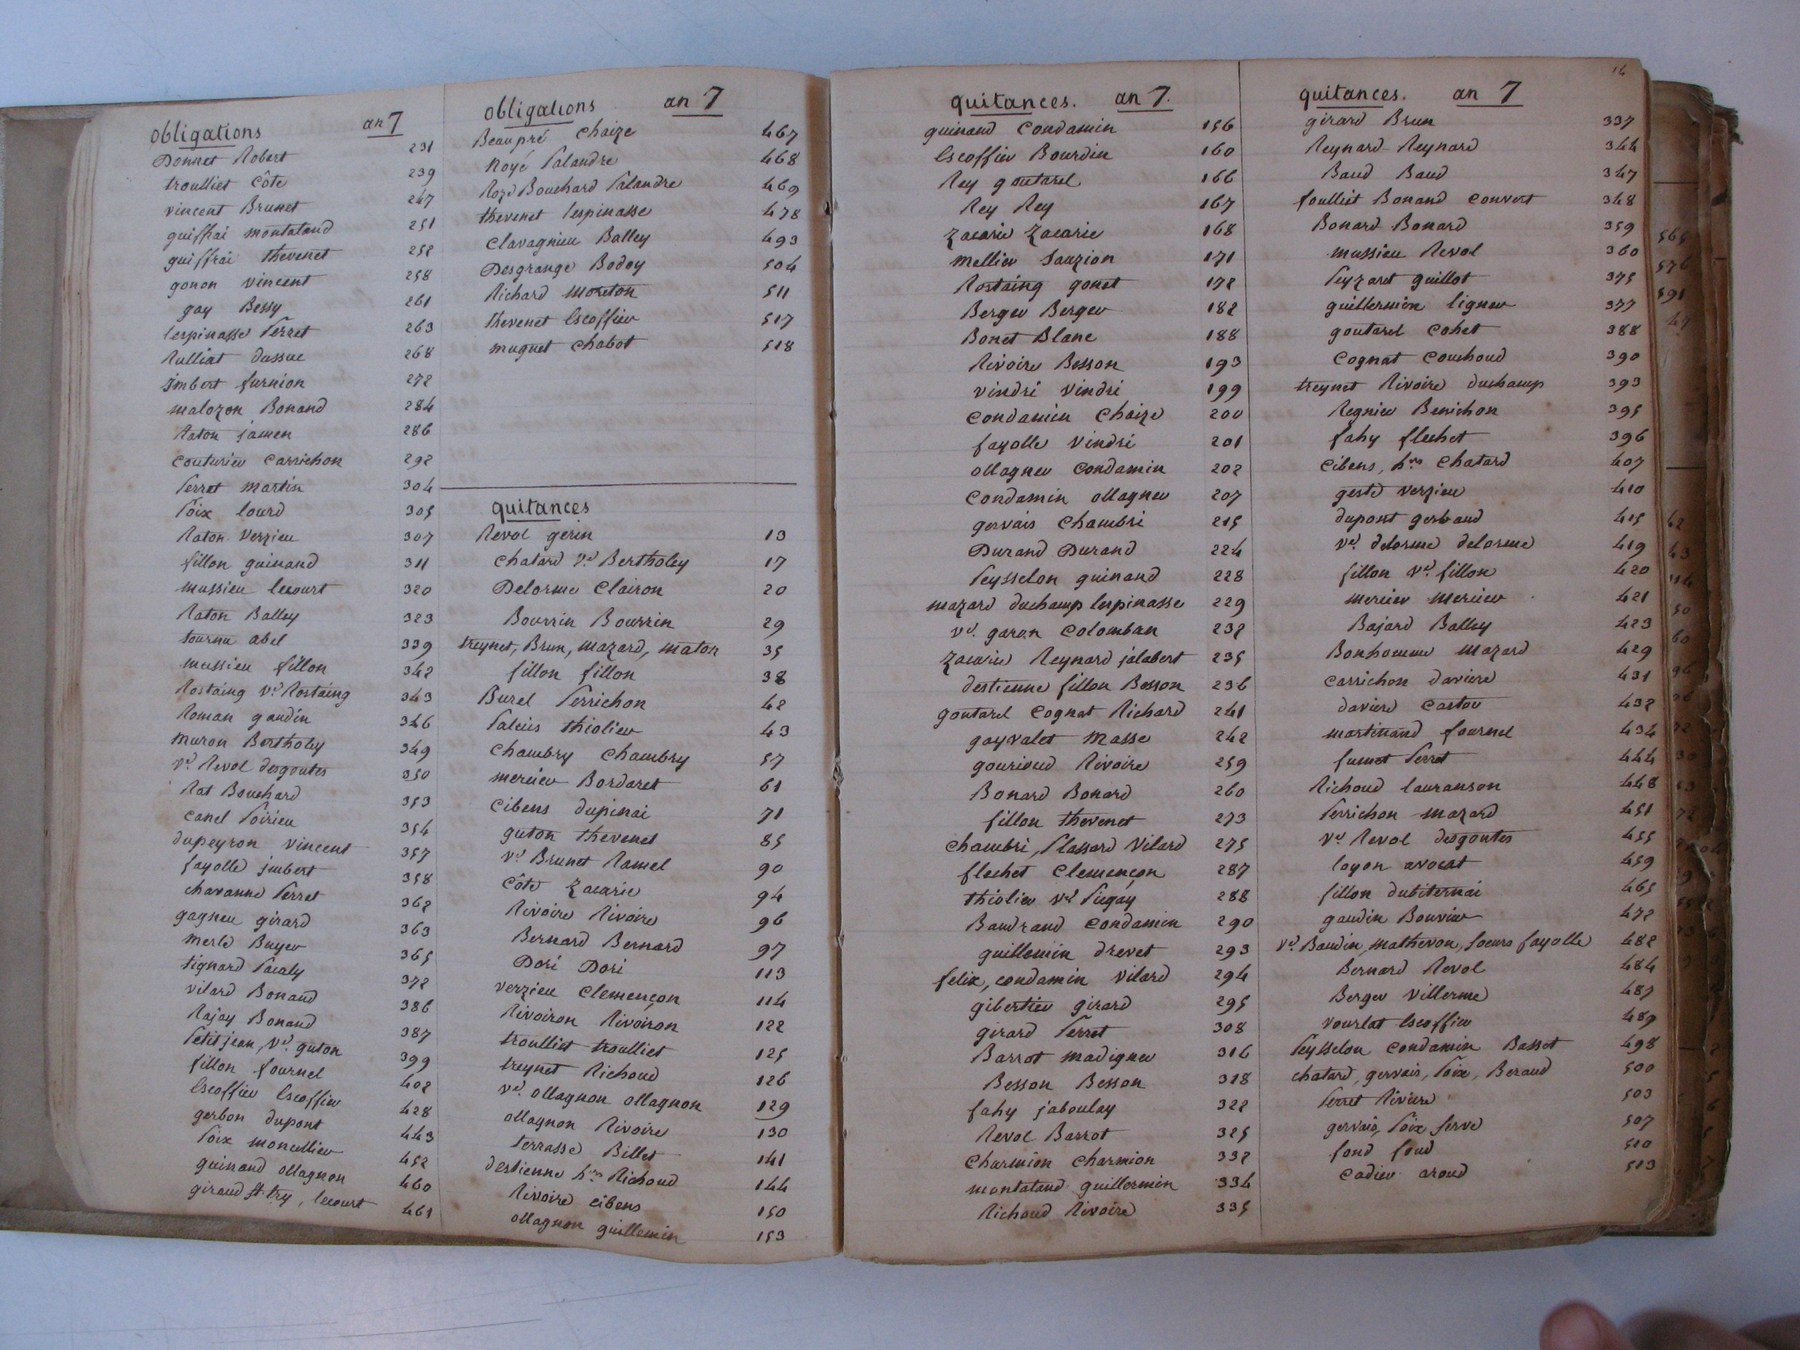 obligations an 7
Donnet Robert 231
troulliet Côte 239
vincent Brunet 247
guiffrai montaland 251
guiffrai thevenet 252
gonon vincent 258
gay Bessy 261
lespinasse Perret 263
Rulliat dussuc 268
imbert furnion 272
malozon Bonand 284
Raton jamen 286
couturieu Carrichon 292
Perret martin 304
Poix lourd 305
Raton verzieu 307
fillon guinand 311
mussieu lecourt 320
Raton Balley 323
tournu abel 339
mussieu fillon 342
Rostaing ve Rostaing 343
Roman gaudin 346
muron Bertholey 349
ve Revol desgoutes 350
Rat Bouchard 353
Canel Poirieu 354
dupeyron vincent 357
fayolle imbert 358
chavanne Perret 362
gagneu girard 363
merle Buyer 365
tignard Pacaly 372
vilard Bonand 386
Rajay Bonand 387
Petit jean, ve guton 399
fillon fournel 402
Escoffieu Escoffieu 428
gerbon dupont 443
Poix moncellieu 452
guinand ollagnon 460
giraud St try, lecourt 461
obligations an 7
Beaupré Chaize 467
Noyé Palandre 468
Roze Bouchard Palandre 469
thevenet lespinasse 478
Clavagnieu Balley 493
Desgrange Bodoy 504
Richard moreton 511
thevenet Escoffieu 517
muguet chabot 518
quitances
Revol gerin 13
Chatard Ve Bertholey 17
Delorme Clairon 20
Bourrin Bourrin 29
treynet, Brun, mazard, maton 35
fillon fillon 38
Burel Perrichon 42
Paleis thiolieu 43
Chambry Chambry 57
mercieu Bordaret 61
Cibens dupinai 71
guton thevenet 85
ve Brunet Ramel 90
Côte Zacarie 94
Rivoire Rivoire 96
Bernard Bernard 97
Dori Dori 113
verzieu Clemençon 114
Rivoiron Rivoiron 122
troulliet troulliet 125
treynet Richoud 126
ve ollagnon ollagnon 129
ollagnon Rivoire 130
terrasse Billet 141
destienne hrs Richoud 144
Rivoire cibens 150
ollagnon guillemin 153
quitances. an 7.
guinand Condamin 156
Escoffieu Bourdin 160
Rey goutarel 166
Rey Rey 167
Zacarie Zacarie 168
mellieu Sauzion 171
Rostaing gonet 172
Berger Berger 182
Bonet Blanc 188
Rivoire Besson 193
vindri vindri 199
Condamin Chaize 200
fayolle vindri 201
ollagneu Condamin 202
Condamin ollagneu 207
gervais Chambri 215
Durand Durand 224
Peysselon guinand 228
mazard duchamp lespinasse 229
ve garon Colomban 232
Zacarie Reynard jalabert 235
destienne fillon Besson 236
goutarel Cognat Richard 241
gayvalet masse 242
gourioud Rivoire 259
Bonard Bonard 260
fillon thevenet 273
chambri, Plassard Vilard 275
flechet Clemençon 287
thiolieu ve Pugay 288
Baudrand Condamin 290
guillemin drevet 293
felix, condamin vilard 294
gibertieu girard 295
girard Perret 308
Barrot madigneu 316
Besson Besson 318
fahy jaboulay 322
Revol Barrot 325
Charmion Charmion 332
montaland guillermin 334
Richoud Rivoire 335
16
quitances. an 7
girard Brun 337
Reynard Reynard 344
Baud Baud 347
foulliet Bonand Convert 348
Bonard Bonard 359
mussieu Revol 360
Peyzaret guillot 375
guillermin ligneu 377
goutarel Cohet 388
Cognat Couchoud 390
treynet Rivoire duchamp 393
Regnieu Benichon 395
fahy flechet 396
Cibens, hrs Chatard 407
geste verzieu 410
dupont gerbaud 415
ve delorme delorme 419
fillon ve fillon 420
mercieu mercieu 421
Bajard Balley 423
Bonhomme mazard 429
Carrichon daviere 431
daviere Castou 432
martinaud fournel 434
fumet Perret 444
Richoud lauranson 448
Perrichon mazard 451
ve Revol desgoutes 455
loyon avocat 459
fillon dubiternai 465
gaudin Bouvieu 472
ve Baudin, mathevon, soeurs fayolle 482
Bernard Revol 484
Berger villerme 487
vourlat Escoffieu 489
Peysselon Condamin Basset 498
Chatard, gervais, Poix, Beraud 500
Perret Riviere 503
gervais, Poix ferve 507
fond fond 510
Cadieu aroud 513